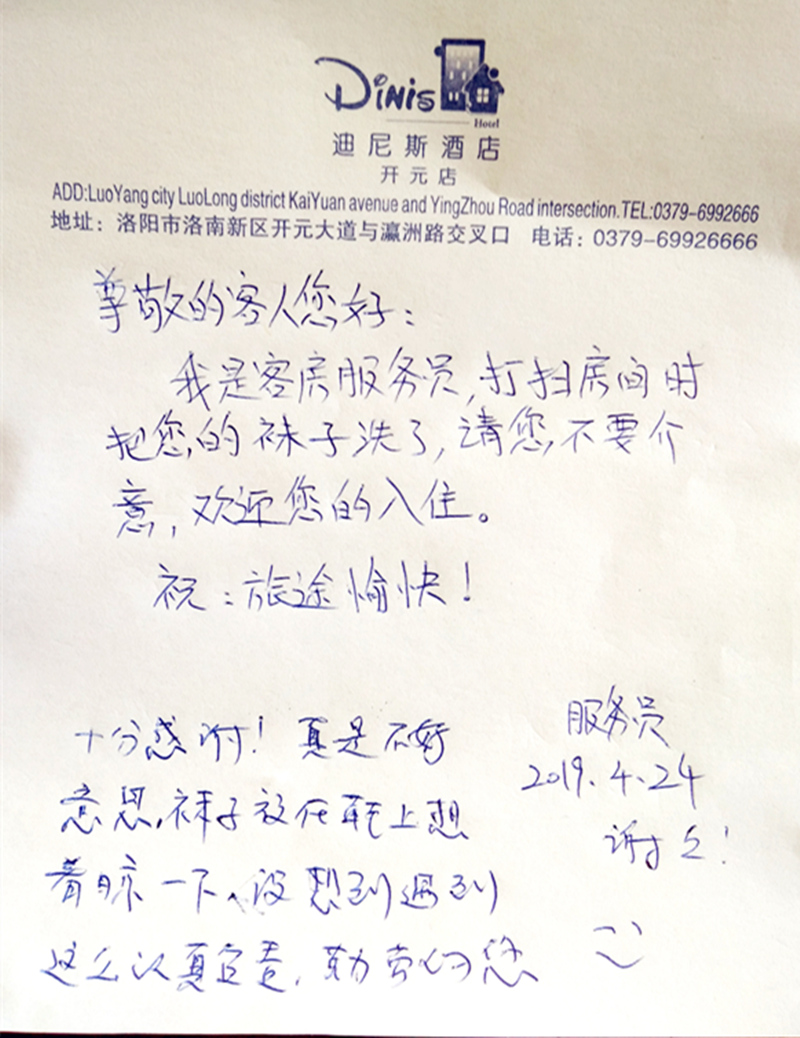 Dinis
Hotel
迪尼斯酒店
开元店
ADD:LuoYang city LuoLong district KaiYuan avenue and YingZhou Road intersection.TEL:0379-6992666
地址：洛阳市洛南新区开元大道与瀛洲路交叉口 电话：0379-69926666
尊敬的客人您好：
我是客房服务员,打扫房间时
把您的袜子洗了,请您不要介
意,欢迎您的入住。
祝：旅途愉快！
服务员
2019.4.24
十分感谢！真是不好
意思,袜子放在鞋上想
着晾一下、没想到遇到
这么认真负责,勤劳的您
谢之！